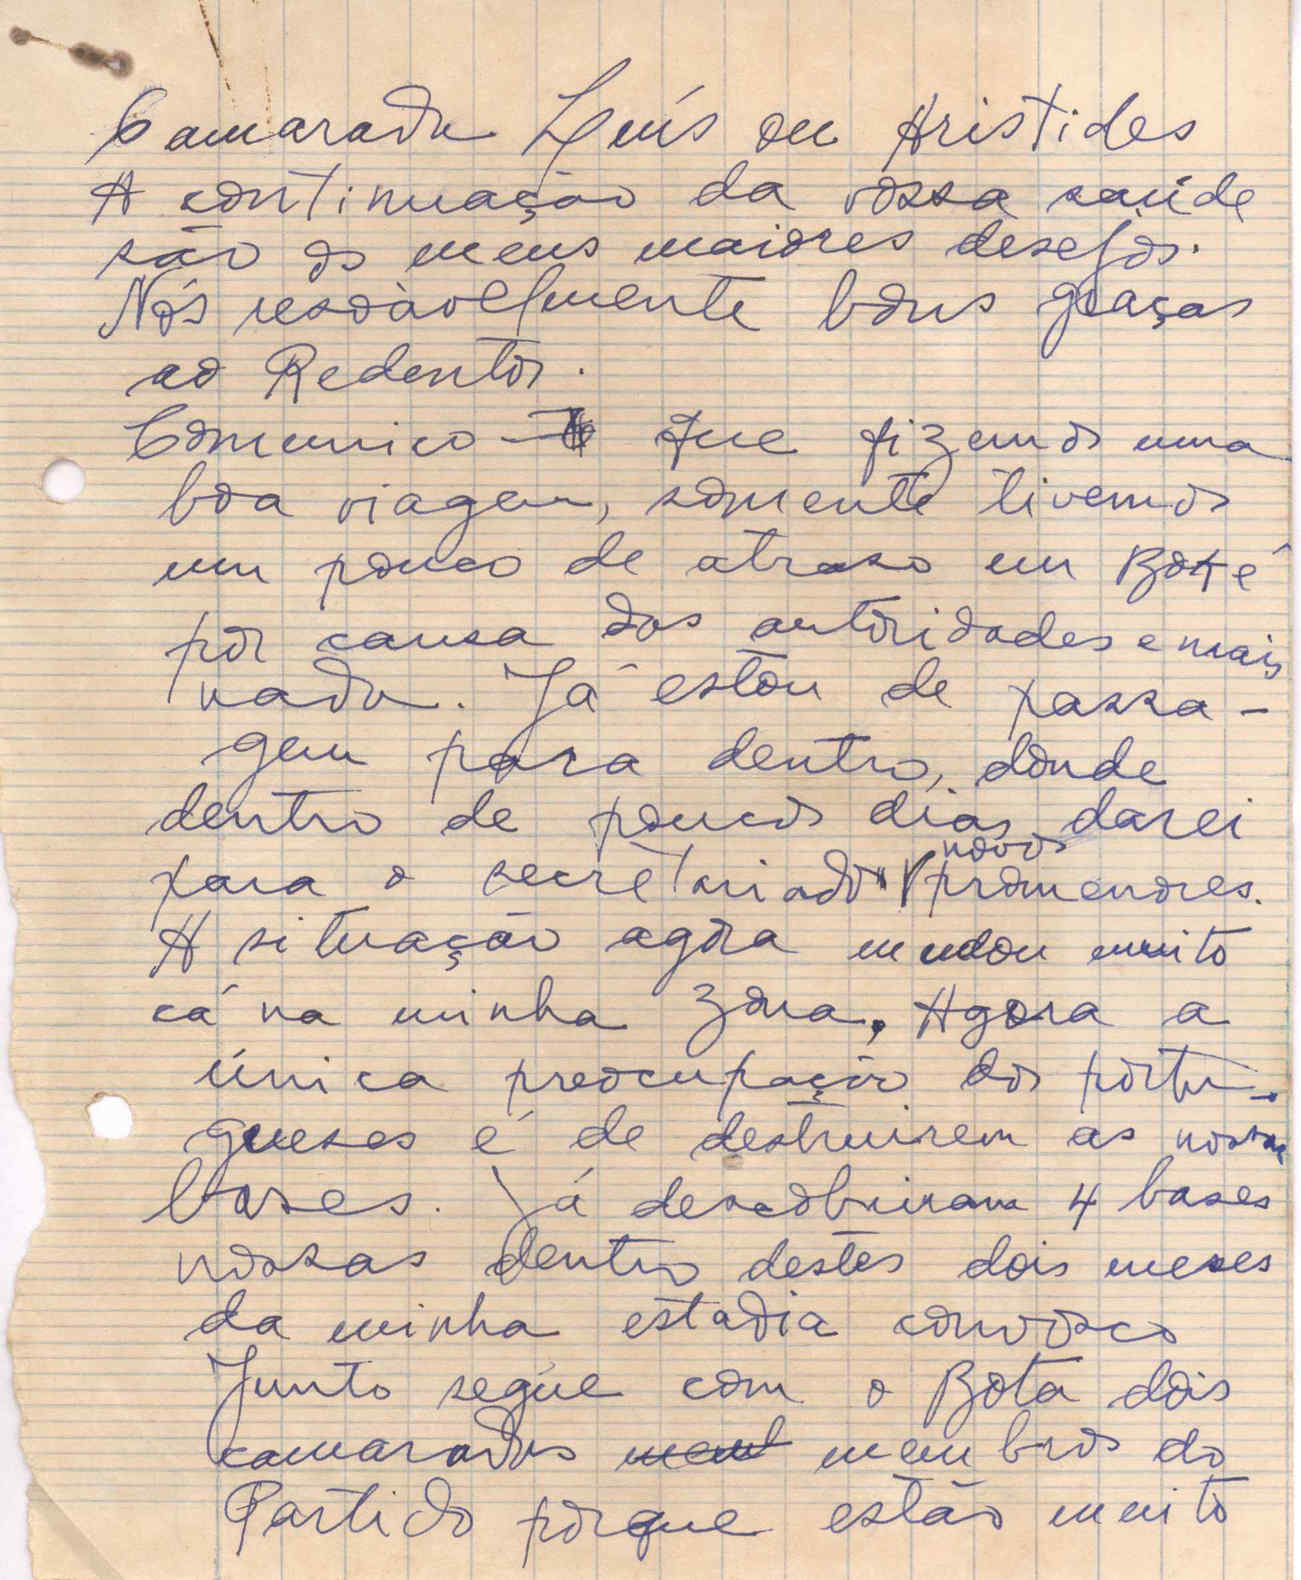 Camarada Luís ou Aristides
A continuação da vossa saúde
são os meus maiores desejos.
Nós resoàvelmente bons graças
ao Redentor.
Comunico que fizemos uma
boa viagem, somente tivemos
um pouco de atraso em Boké
por causa das autoridades e mais
nada. Já estou de passa-
gem para dentro, donde
dentro de poucos dias darei
para o secretariado novos promenores.
A situação agora mudou muito
cá na minha zona. Agora a
única preocupação dos portu-
gueses é de destruirem as nossas
bases. Já descobriram 4 bases
nossas dentro destes dois meses
da minha estadia convosco
Junto segue com o Bota dois
camaradas membros do
Partido porque estão muito